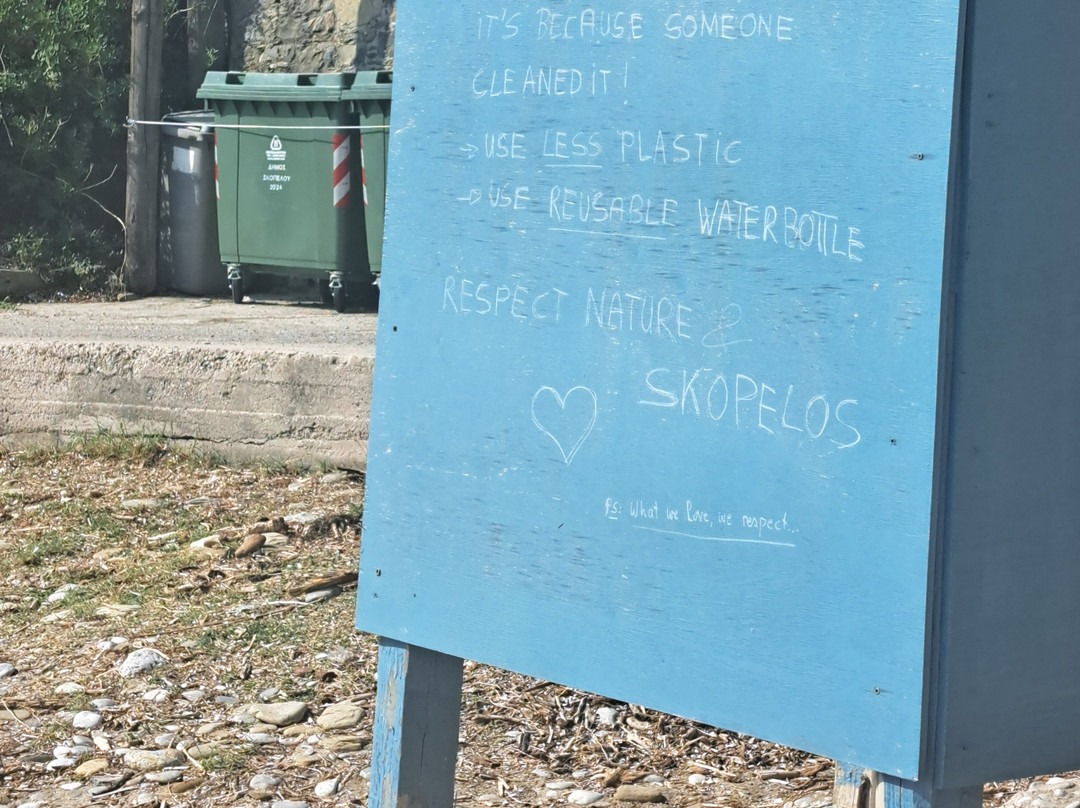 iT'S BECAUSE SOMEONE
CLEANED iT!
→ USE LESS PLASTiC
→ USE REUSABLE WATERBOTTLE
RESPECT NATURE &
SKOPELOS
PS: What we love, we respect...
ΔΗΜΟΣ
ΣΚΟΠΕΛΟΥ
2024